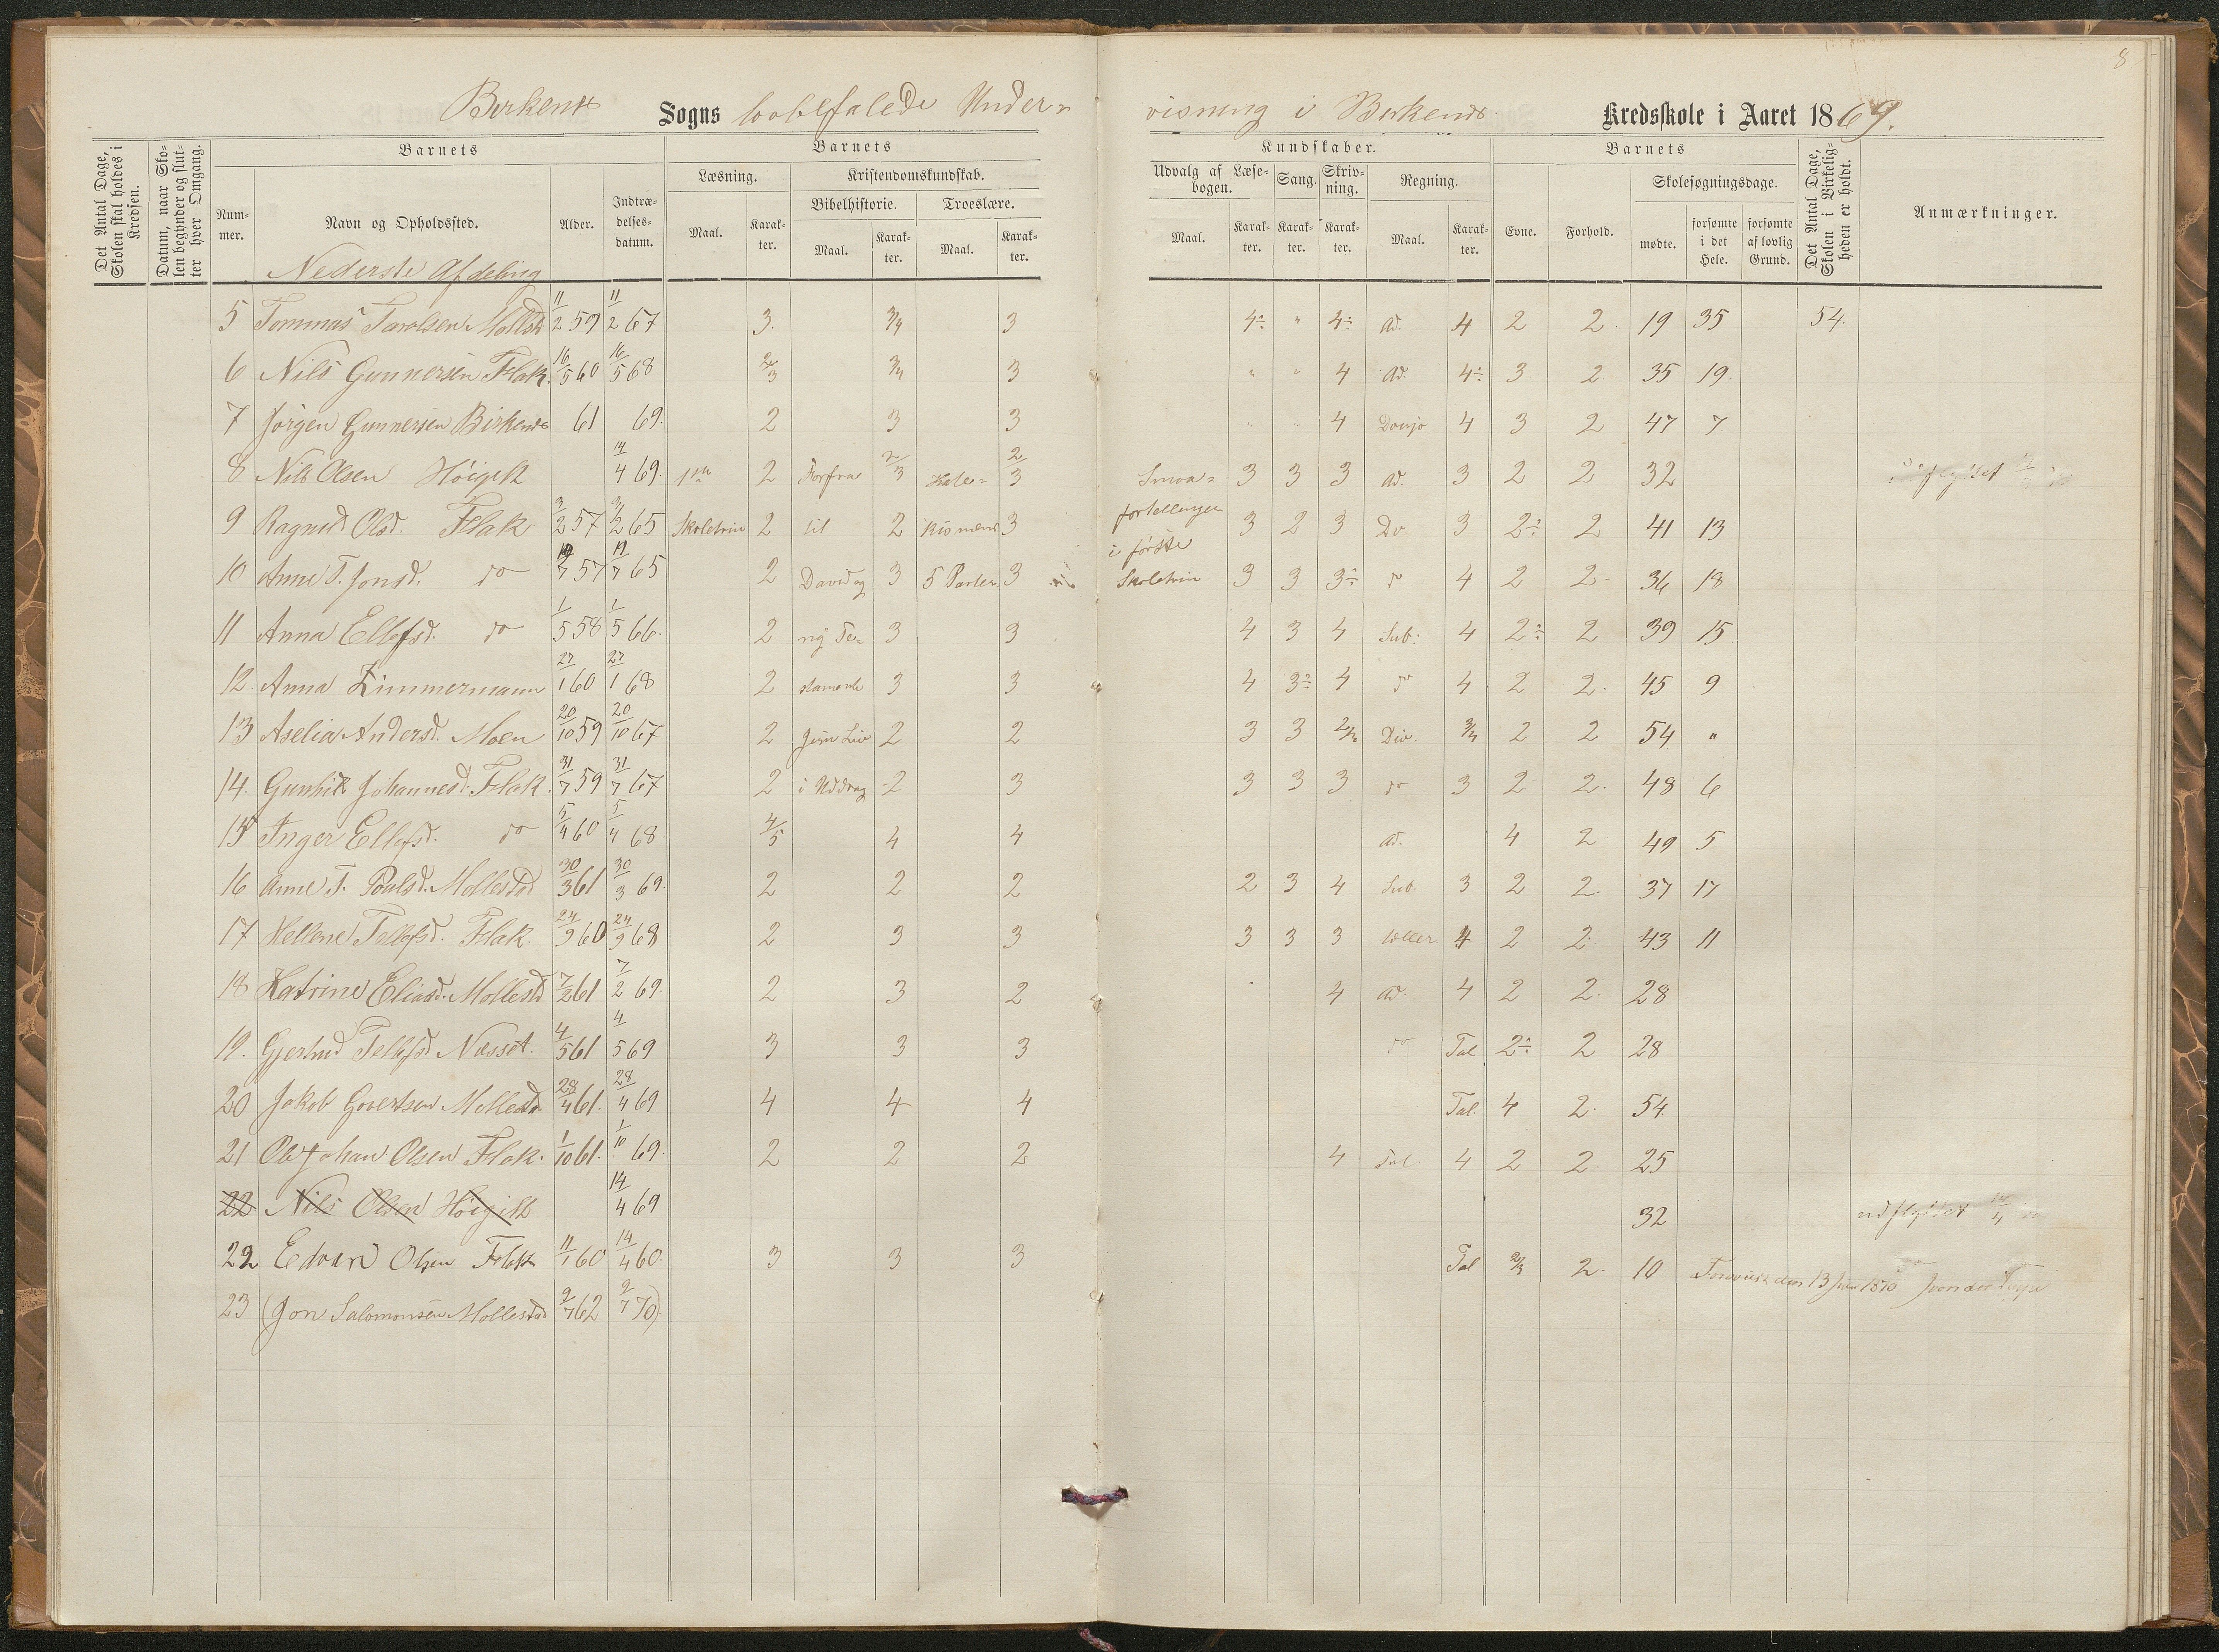 8
Birkenæs Sogns lovbefalede Undervisning i Birkenæs Kredsskole i Aaret 1869.
Det Antal Dage, Skolen skal holdes i Kredsen.
Datum, naar Skolen begynder og slutter hver Omgang.
Barnets
Nummer.
Navn og Opholdssted.
Alder.
Indtrædelsesdatum.
Barnets
Læsning.
Maal.
Karakter.
Kristendomskundskab.
Bibelhistorie.
Maal.
Karakter.
Troeslære.
Maal.
Karakter.
Kundskaber.
Udvalg af Læsebogen.
Maal.
Karakter.
Sang.
Karakter.
Skrivning.
Karakter.
Regning.
Maal.
Karakter.
Barnets
Evne.
Forhold.
Skolesøgningsdage.
mødte.
forsømte i det Hele.
forsømte af lovlig Grund.
Det Antal Dage, Skolen i Virkeligheden er holdt.
Anmærkninger.
Nederste Afdeling
5 11/2 59 11/2 67 3. 3/4 3 4÷ " 4÷ Ad. 4 2 2. 19 35 54.
6 Nils Gunnersen Flak. 16/5 60 16/5 68 2/3 3/4 3 " " 4 Ad. 4÷ 3 2. 35 19.
7 Jörgen Gunnersen Birkenæs 61 69. 2 3 3 " " 4 4 3 2 47 7
8 Nils Olsen Höigilt 14/4 69. 1ste 2 Forfra 2/3 Kate= 2/3 Smaa= 3 3 3 Ad. 3 2 2 32
9 Ragnild Olsd. Flak 3/2 57 3/2 65 Skoletrin 2 til 2 kismens 3 fortellinger 3 2 3 Do 3 2÷ 2 41 13
10 Anne T. Jonsd. do 7 57 7 65 2 David og 3 5 Parter 3 i förste Skoletrin 3 3 3÷ do 4 2 2. 36 18
11 Anna Ellefsd. do 1/5 58 1/5 66. 2 ny Te= 3 3 4 3 4 Sub. 4 2÷ 2 39 15
12 Anna Zimmermann 27/1 60 27/1 68 2 stamente 3 3 4 3÷ 4 do 4 2 2. 45 9
13 Aselia Andersd. Moen 20/10 59 20/10 67 2 Jesu Liv 2 2 3 3 Div. 3/4 2 2 54 "
14. Gunhild Johannesd. Flak. 31/7 59 31/7 67 2 i Uddrag 2 3 3 3 3 do 3 2 2. 48 6
15 Inger Ellefsd. do 5/4 60 5/4 68 4/5 4 4 Ad. 4 2 49 5
16 Anne T. Poulsd. Mollestad 30/3 61 30/3 69. 2 2 2 2 3 4 Sub. 3 2 2. 37 17
17 Hellene Tellefsd. Flak. 24/9 60 24/9 68 2 3 3 3 3 3 4 2 2. 43 11
18 Katrine Eliasd. Mollestd 7/2 61 7/2 69. 2 3 2 4 Ad. 4 2 2. 28
19. Gjertrud Tellefsd. Næsset. 4/5 61 4/5 69 3 3 3 do Tal 2÷ 2 28
20 Jakob Govertsen Mollestd. 28/4 61. 28/4 69 4 4 4 Tal. 4 2. 54.
21 Ole Johan Olsen Flak. 1/10 61. 1/10 69. 2 2 2 4 Tal 4 2 2. 25
22 Nils Olsen Höigilt 14/4 69 32 udflyttet 14/4
22 Edvard Olsen Flak 11/1 60 14/4 60. 3 3 3 Tal 2/3 2. 10
23 (Jon Salomonsen Mollestad 9/7 62 9/7 70)